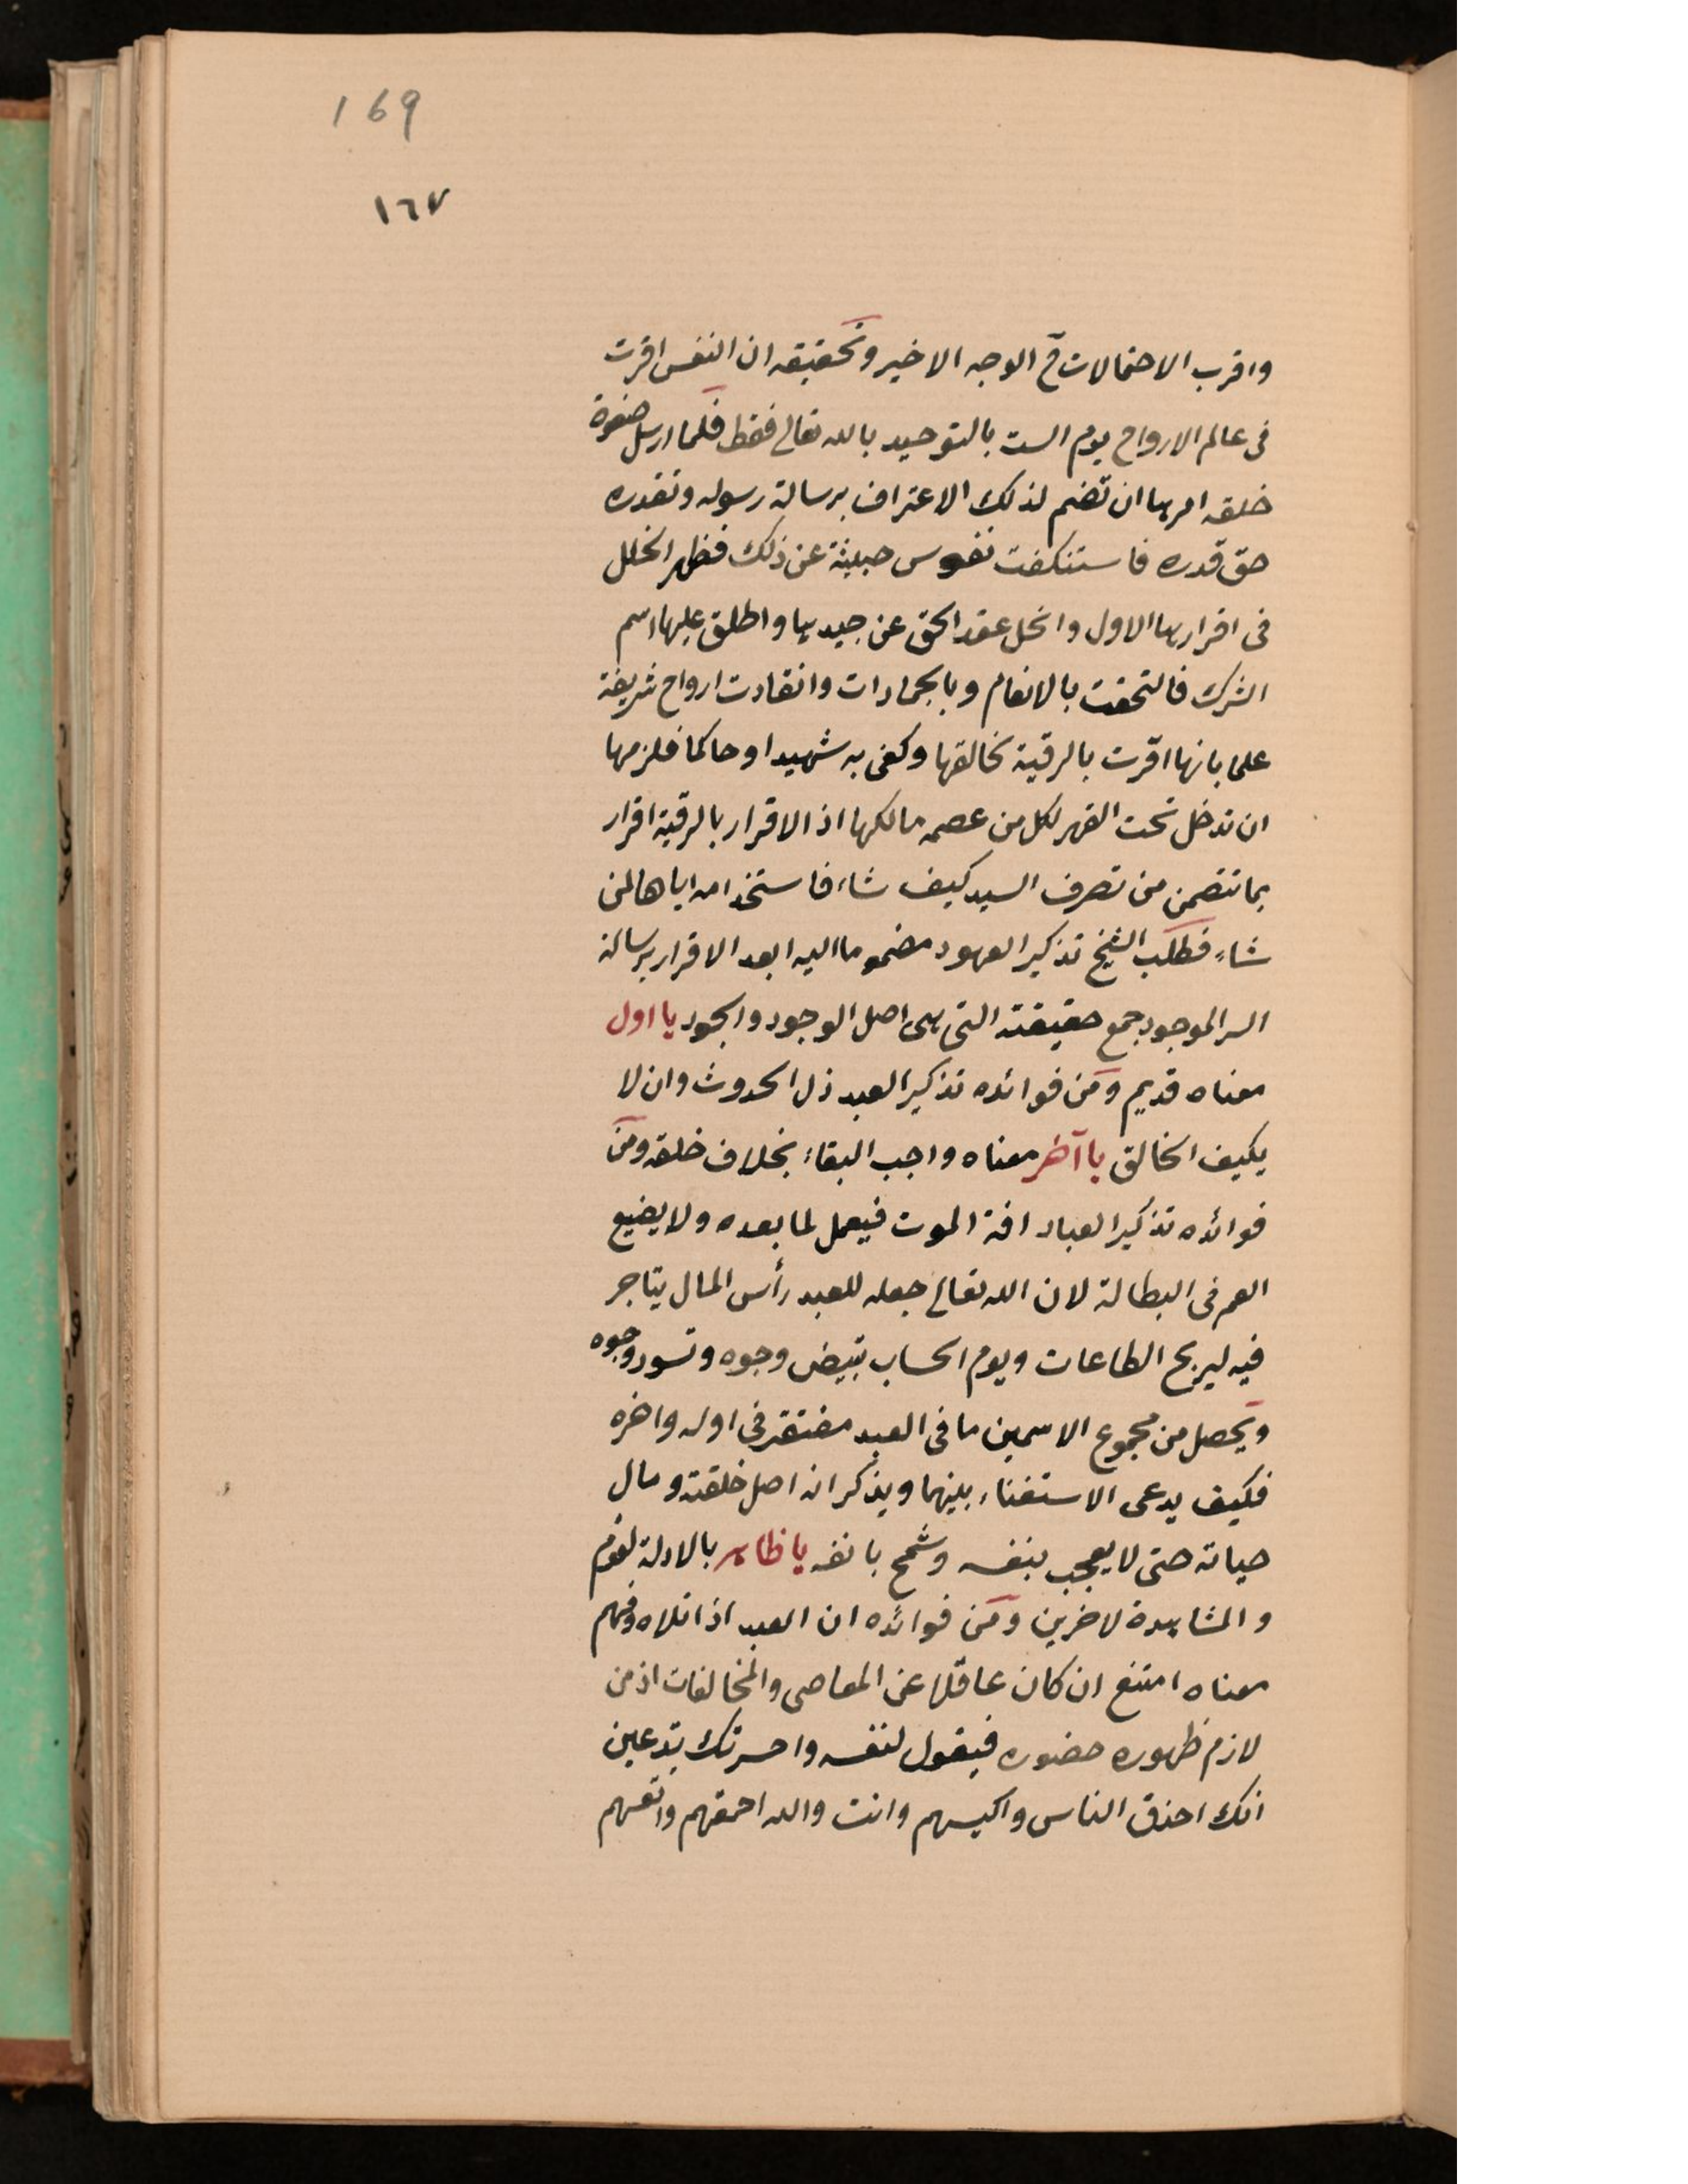 169
١٦٧
واقرب الاحتمالات في الوجه الاخير وتحقيقه ان النفس اقرت
فى عالم الارواح يوم الست بالتوحيد بالله تعالى فقط فلما ارسل صفوة
خلقه امرها ان تضم لذلك الاعتراف برسالة رسوله وتقدره
حق قدره فاستنكفت نفوس خبيثة عن ذلك فظهر الخلل
فى اقرارها الاول وانحل عقد الحق عن جيدها واطلق عليها اسم
الشرك فالتحقت بالانعام وبالجمادات وانقادت ارواح شريفة
علما بانها اقرت بالرقية لخالقها وكفى به شهيدا وحاكما فلزمها
ان تدخل تحت القهر لكل من عصمه مالكها اذ الاقرار بالرقية اقرار
بما تتضمن من تصرف السيد كيف شاء فاستخدامه اياها لمن
شاء فطلب الشيخ تذكير العهود مضموما اليه ابعد الاقرار برسالة
السر الموجود جمع حقيقته التى هى اصل الوجود والجود يا اول
معناه قديم ومن فوائده تذكير العبد ذل الحدوث وان لا
يكيف الخالق يا آخر معناه واجب البقاء بخلاف خلقه ومن
فوائده تذكير العباد افة الموت فيعمل لما بعده ولا يضيع
العمر فى البطالة لان الله تعالى جعله للعبد رأس المال يتاجر
فيه ليربح الطاعات ويوم الحساب تبيض وجوه وتسود وجوه
ويحصل من مجموع الاسمين ما فى العبد مفتقر فى اوله واخره
فكيف يدعى الاستغناء بينهما ويذكر انه اصل خلقته ومال
حياته حتى لا يعجب بنفسه وشمخ بانفه يا ظاهر بالادلة لقوم
والمشاهدة لاخرين ومن فوائده ان العبد اذا تلاه وفهم
معناه امتنع ان كان عاقلا عن المعاصى والمخالفات اذ من
لازم ظهوره حضوره فيقول لنفسه واحسرتك تدعين
انك احذق الناس واكيسهم وانت والله احمقهم واتعسهم